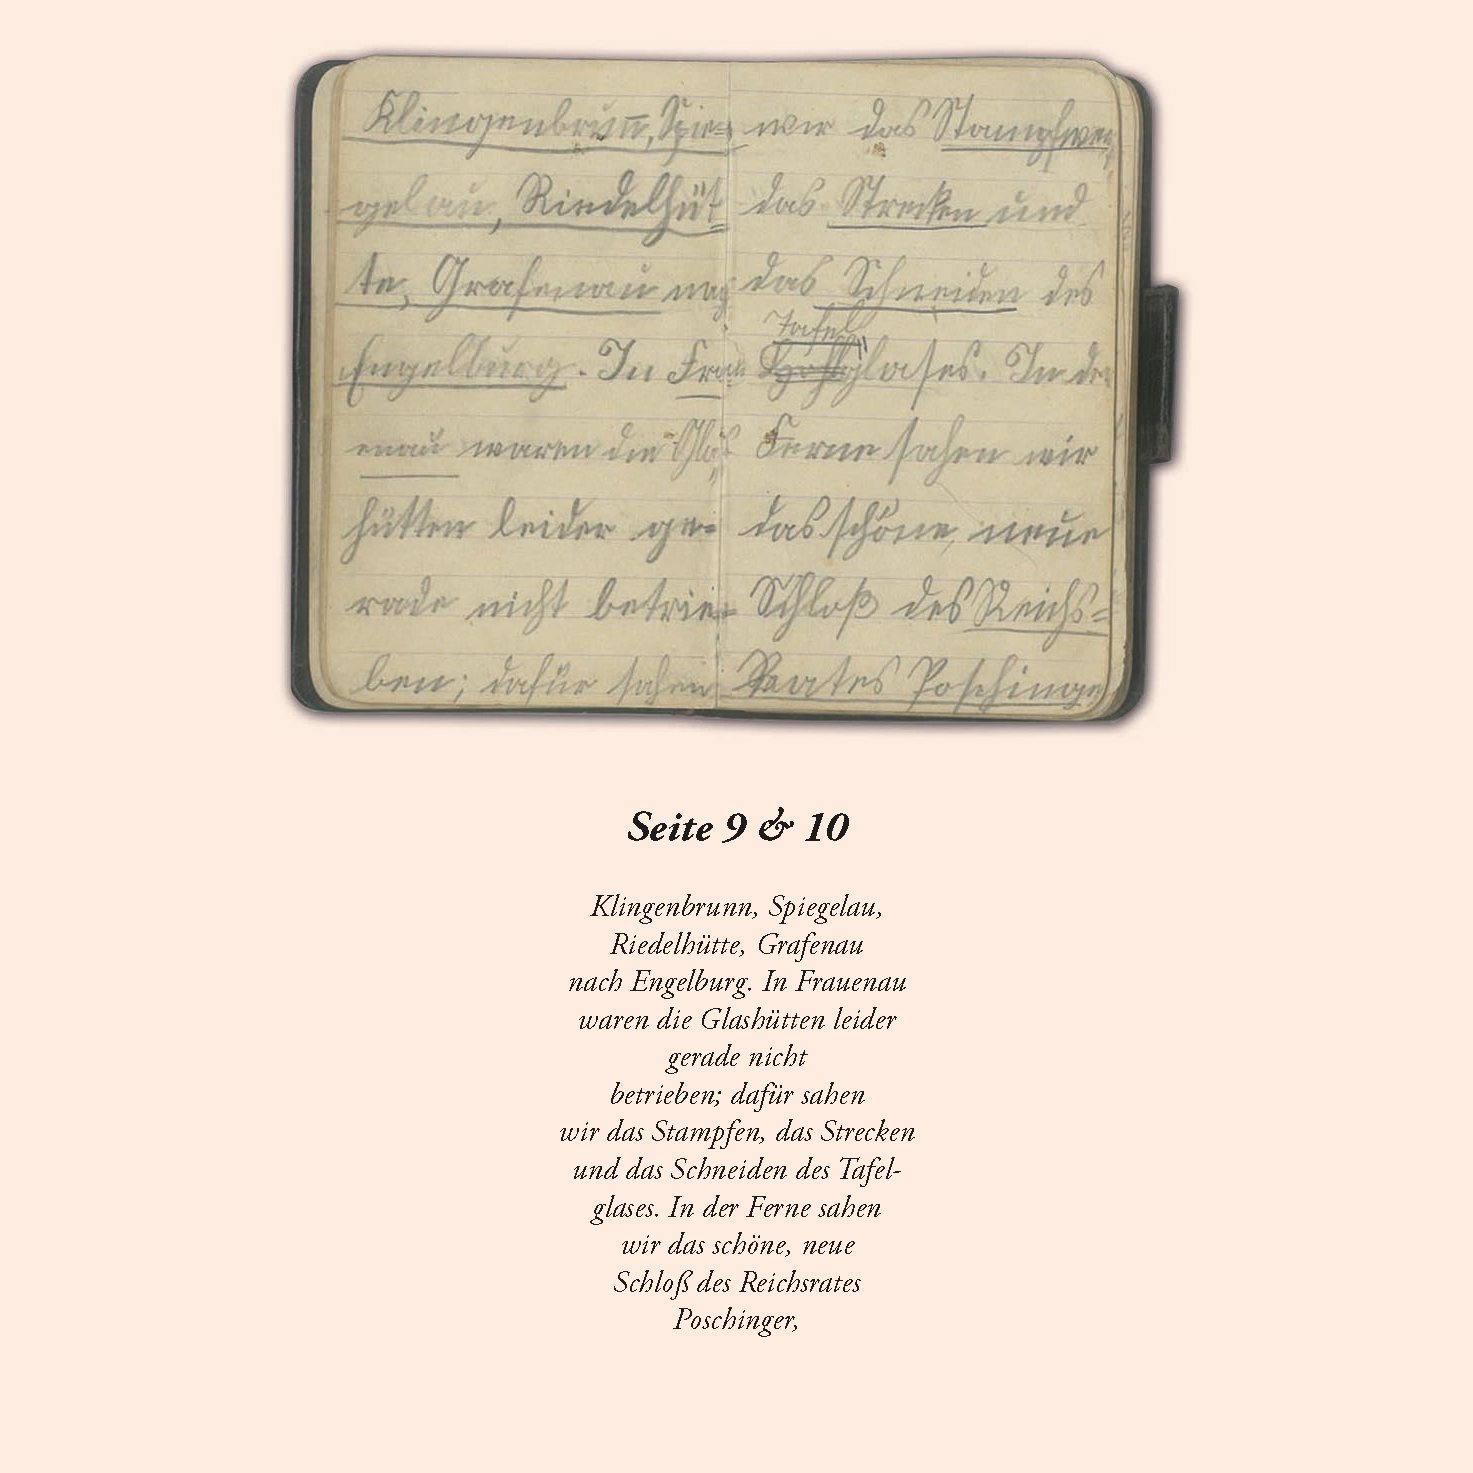 Klingenbrun̅, Spie=
gelau, Riedelhüt=
te, Grafenau nach
Engelburg. In Frau=
enau waren die Glas
hütten leider ge=
rade nicht betrie=
ben; dafür sahen
wir das
das Strecken und
das Schneiden des
Tafel
Hohlglases. In der
Ferne sahen wir
das schöne, neue
Schloß des Reichs=
Rates Poschinger
Seite 9 & 10
Klingenbrunn, Spiegelau,
Riedelhütte, Grafenau
nach Engelburg. In Frauenau
waren die Glashütten leider
gerade nicht
betrieben; dafür sahen
wir das Stampfen, das Strecken
und das Schneiden des Tafel-
glases. In der Ferne sahen
wir das schöne, neue
Schloß des Reichsrates
Poschinger,